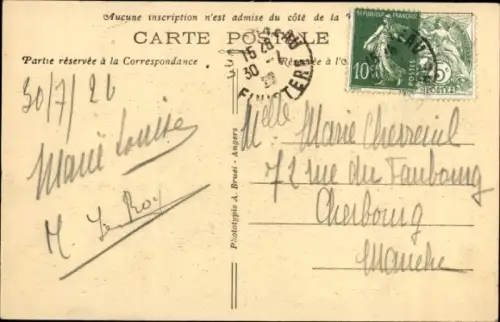 Aucune inscription n'est admise du côté de la
CARTE POSTALE
Partie réservée à la Correspondance
Réservée à l'
30/7/26
Marie Louise
M. Le Roy
Phototypie A. Bruel - Angers
15
30
FINISTERE
REPUBLIQUE FRANÇAISE
10
POSTES
5
Melle Marie Chevreuil
72 rue du Faubourg
Cherbourg
Manche